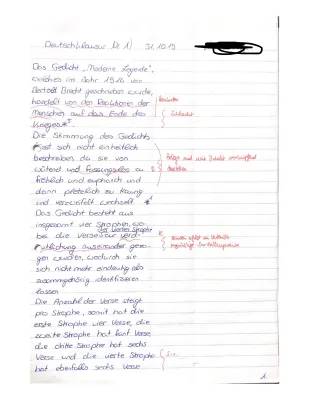 Deutschklausur Nr. 1) 31.10.19
Das Gedicht „Moderne Legende",
welches im Jahr 1914 von
Bertolt Brecht geschrieben wurde,
handelt von den Reaktionen der
Menschen auf das Ende des
Krieges*.
Die Stimmung des Gedichts
lässt sich nicht einheitlich
beschreiben da sie von
wütend und fassungslos zu
fröhlich und euphorisch und
dann plötzlich zu traurig
und verzweifelt wechselt.
Das Gedicht besteht aus
insgesamt vier Strophen, wo-
bei die Verse zur Verd-
der vierten Strophe
eutlichung auseinander gezo-
gen wurden, wodurch sie
sich nicht mehr eindeutig als
zusammengehörig identifizieren
lassen
Die Anzahl der Verse steigt
pro Strophe, somit hat die
erste Strophe vier Verse, die
zweite Strophe hat fünf Verse
die dritte Strophe hat sechs
Verse und die vierte Strophe
hat ebenfalls sechs Verse
1.